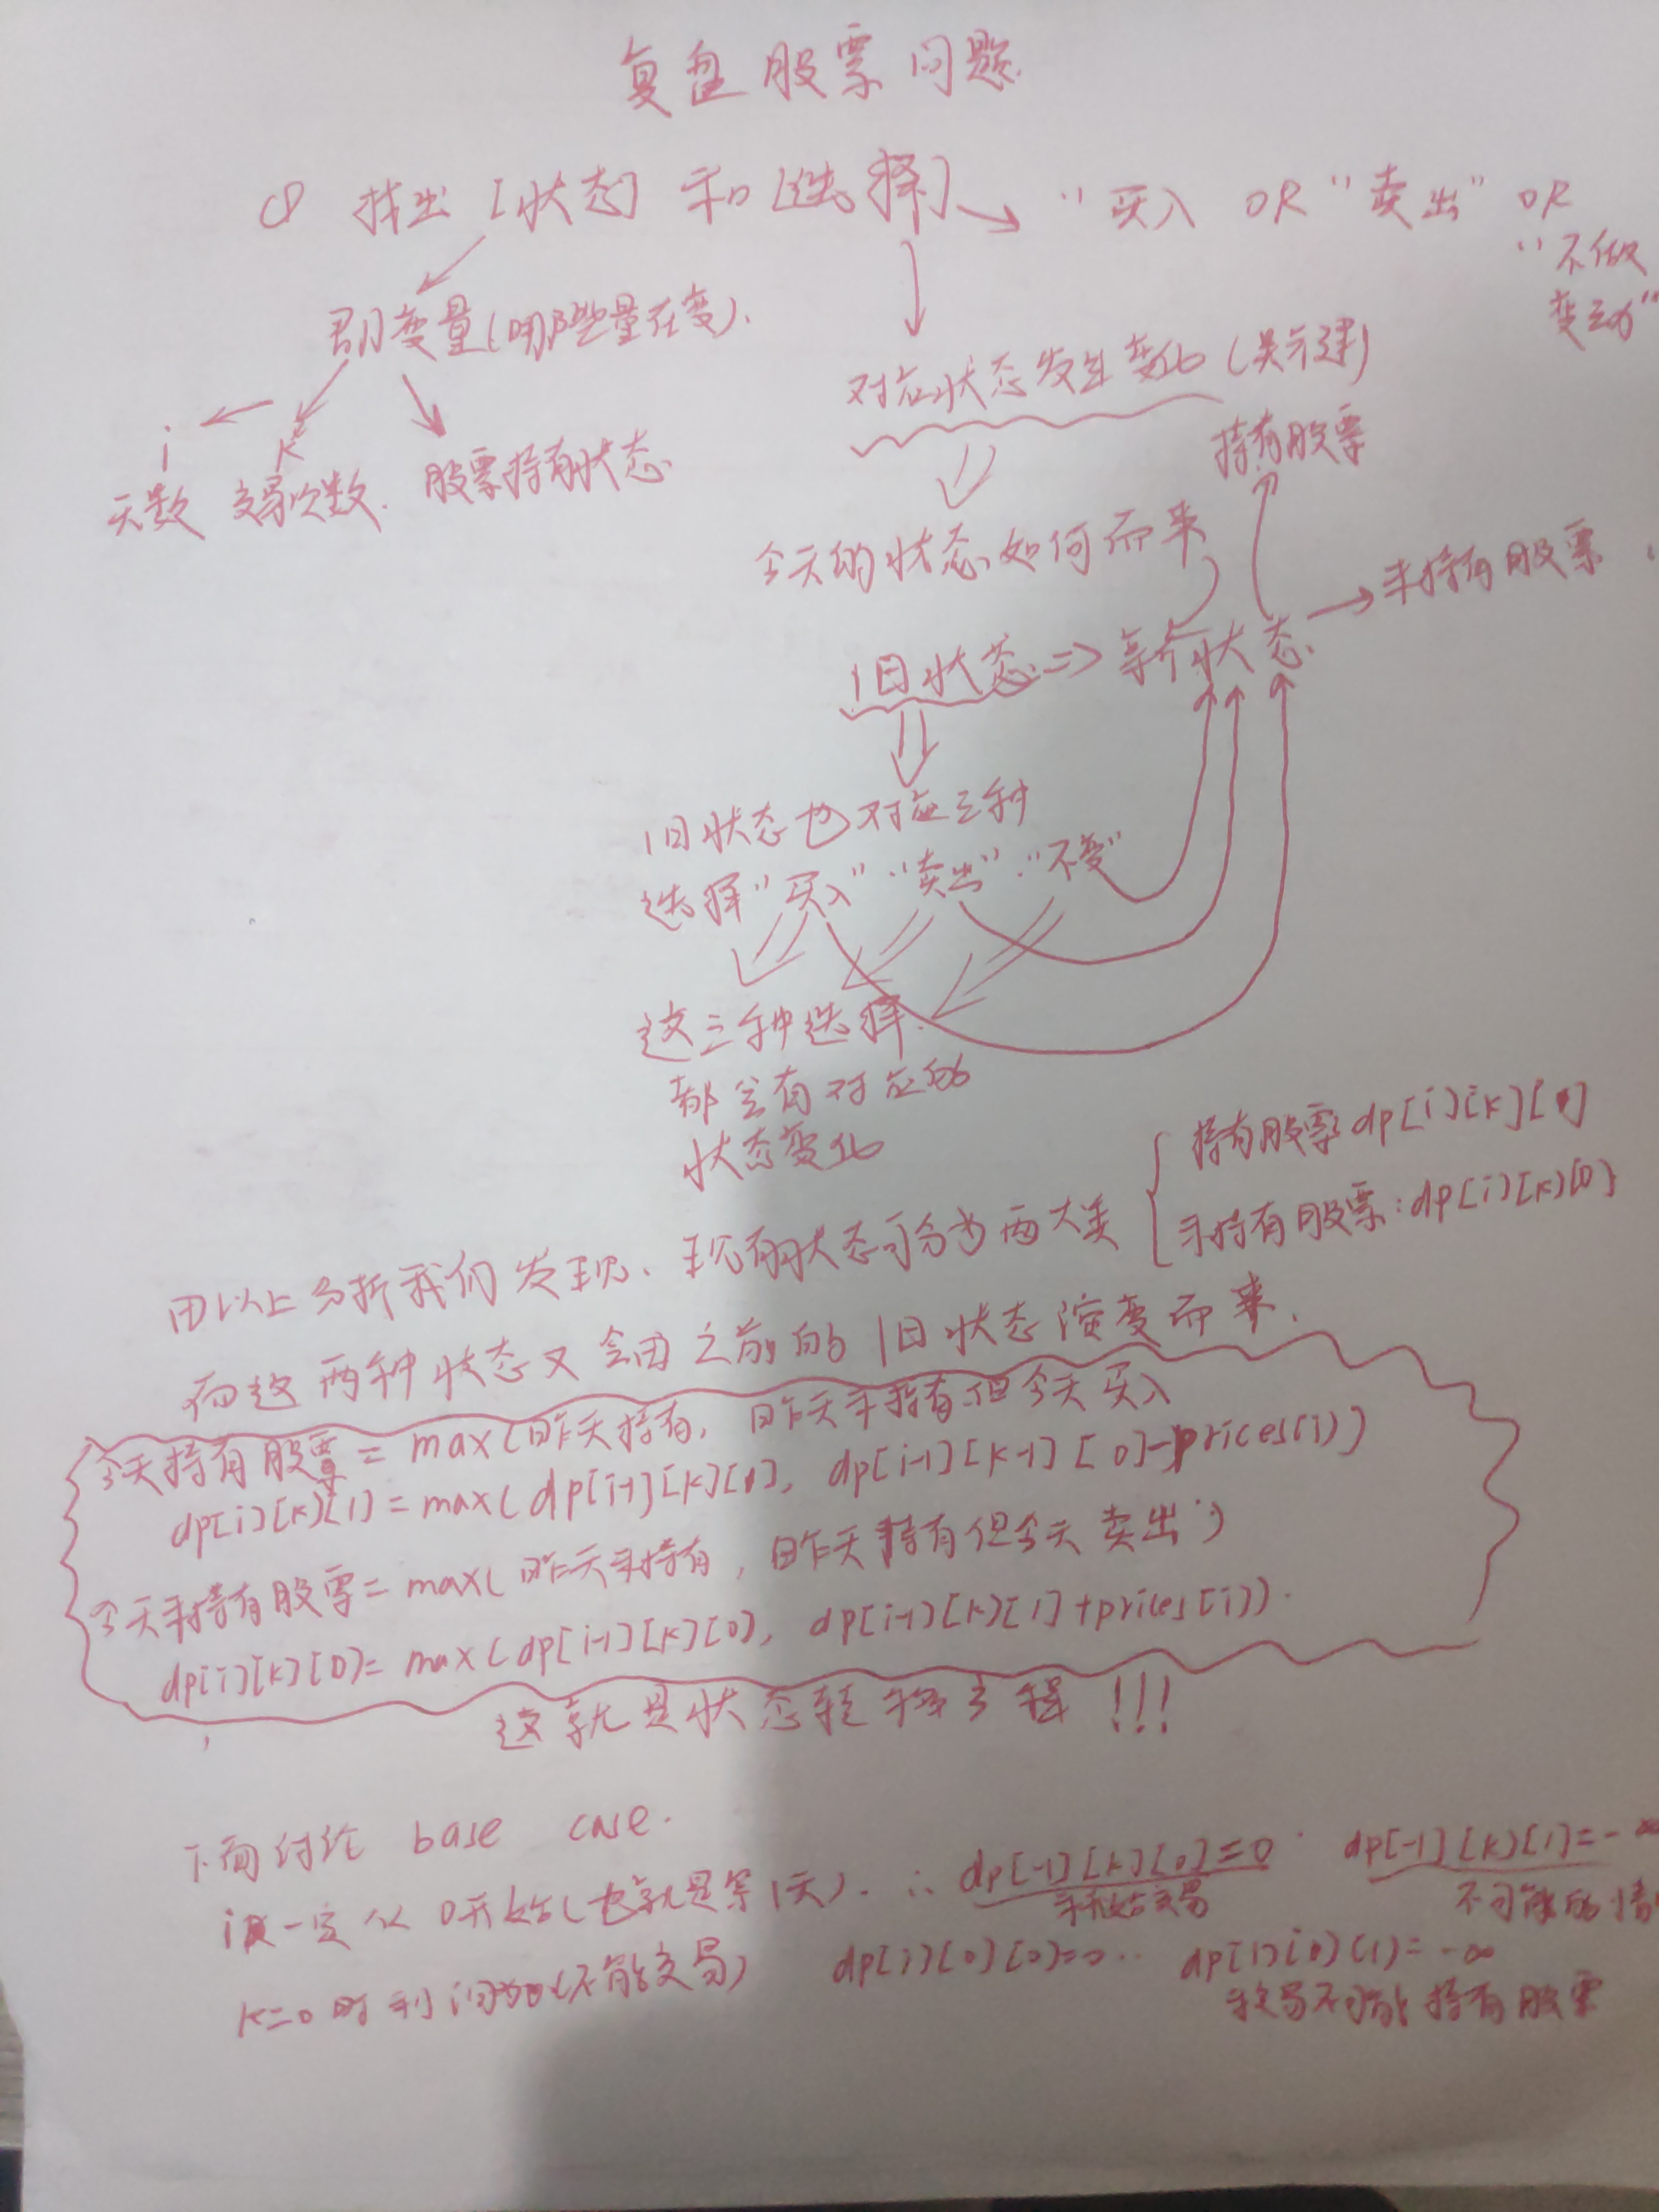 复盘股票问题
① 找出[状态]和[选择] → "买入 OR "卖出" OR
"不做
变动"
即变量(哪些量在变).
对应状态发生变化(关键)
i k
天数 交易次数. 股票持有状态
持有股票
今天的状态如何而来
旧状态 => 新状态 → 未持有股票
旧状态也对应三种
选择"买入" "卖出" "不变"
这三种选择
都会有对应的
状态变化
持有股票 dp[i][k][1]
未持有股票:dp[i][k][0]
由以上分析我们发现、现有状态可分为两大类
而这两种状态又会由之前的旧状态演变而来.
今天持有股票 = max(昨天持有, 昨天未持有但今天买入
dp[i][k][1] = max( dp[i-1][k][1], dp[i-1][k-1][0]-prices[i])
今天未持有股票 = max( 昨天未持有, 昨天持有但今天卖出)
dp[i][k][0] = max( dp[i-1][k][0], dp[i-1][k][1]+prices[i]).
这就是状态转移方程!!!
下面讨论 base case.
i 一定从0开始(也就是第1天). ∴ dp[-1][k][0]=0 dp[-1][k][1]=-∞
未开始交易 不可能的情
k=0时利润为0(不能交易) dp[i][0][0]=0 dp[i][0][1]=-∞
未交易不可能持有股票